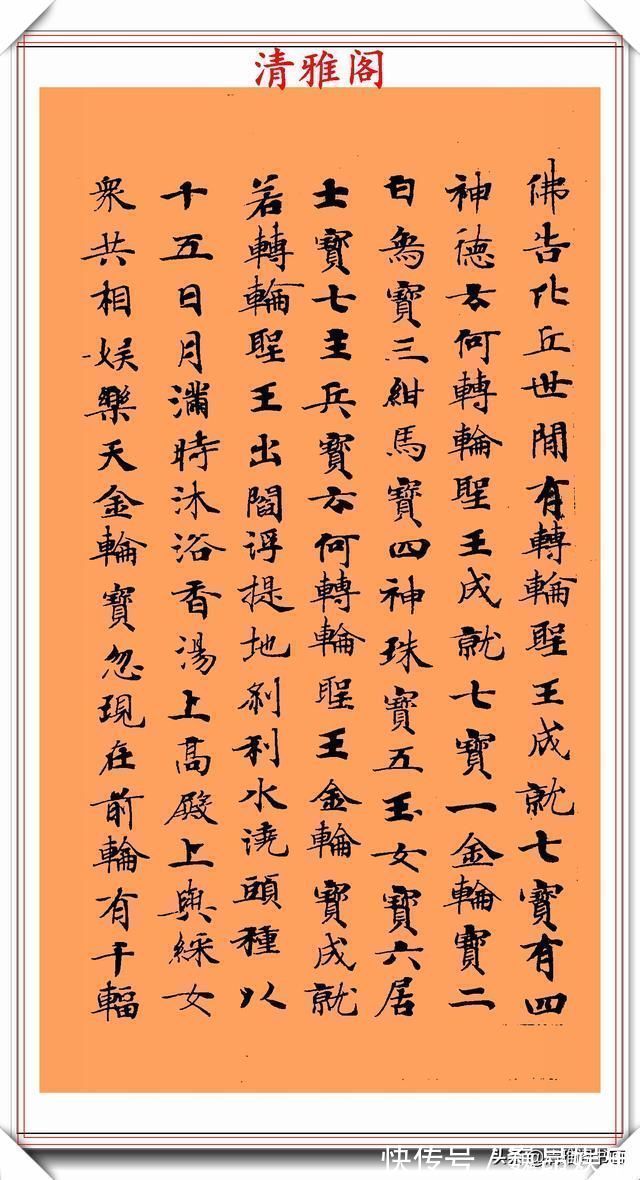 清雅阁
佛告比丘世間有轉輪聖王成就七寶有四
神德云何轉輪聖王成就七寶一金輪寶二
白象寶三紺馬寶四神珠寶五玉女寶六居
士寶七主兵寶云何轉輪聖王金輪寶成就
若轉輪聖王出閻浮提地刹利水澆頭種以
十五日月滿時沐浴香湯上高殿上與綵女
衆共相娛樂天金輪寶忽現在前輪有千輻
快传号 /